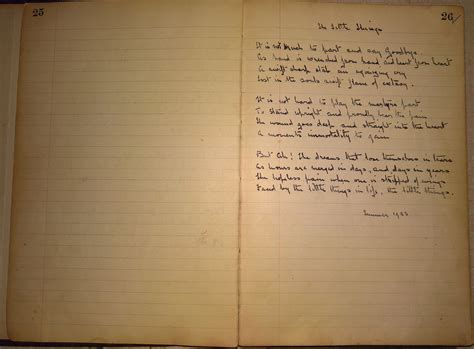 25
26
The Little Things
It is not hard to part and say Goodbye
As hand is wrended from hand and heart from heart
A swift sharp stab an agonizing cry
Lost in the souls upraft flame of ecstasy.
It is not hard to play the masters part
To stand upright and proudly bear the pain
The wound goes deep and straight into the heart
A moments immortality to gain
But Oh! The dreams that lose themselves in tears
As hours are merged in days, and days in years
The helpless pain when one is stripped of wings
Faced by the little things in life, the little things.
Summer 1933